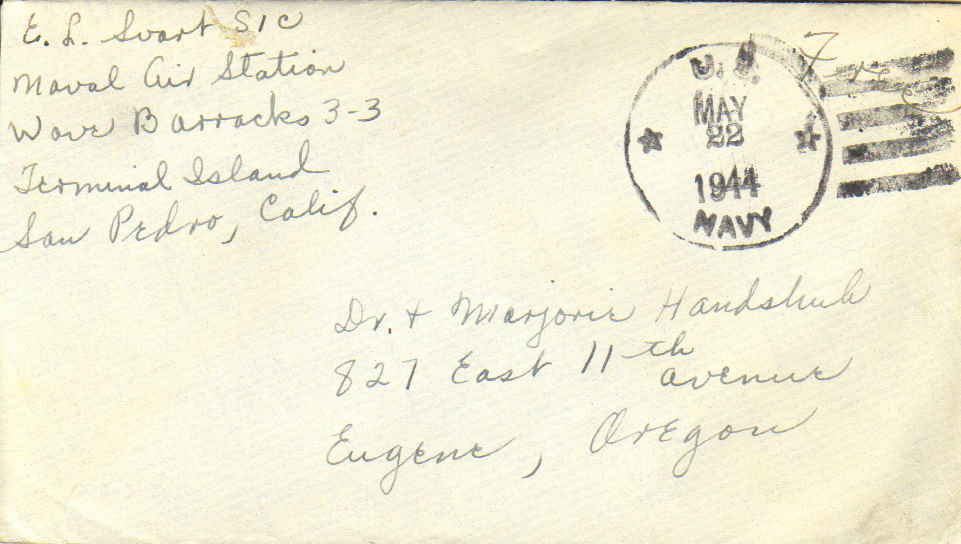 E. L. Svart S1C
Naval Air Station
Wave Barracks 3-3
Terminal Island
San Pedro, Calif.
U. S.
MAY
22
1944
NAVY
Free
Dr. + Marjorie Handshuh
827 East 11th
avenue
Eugene, Oregon